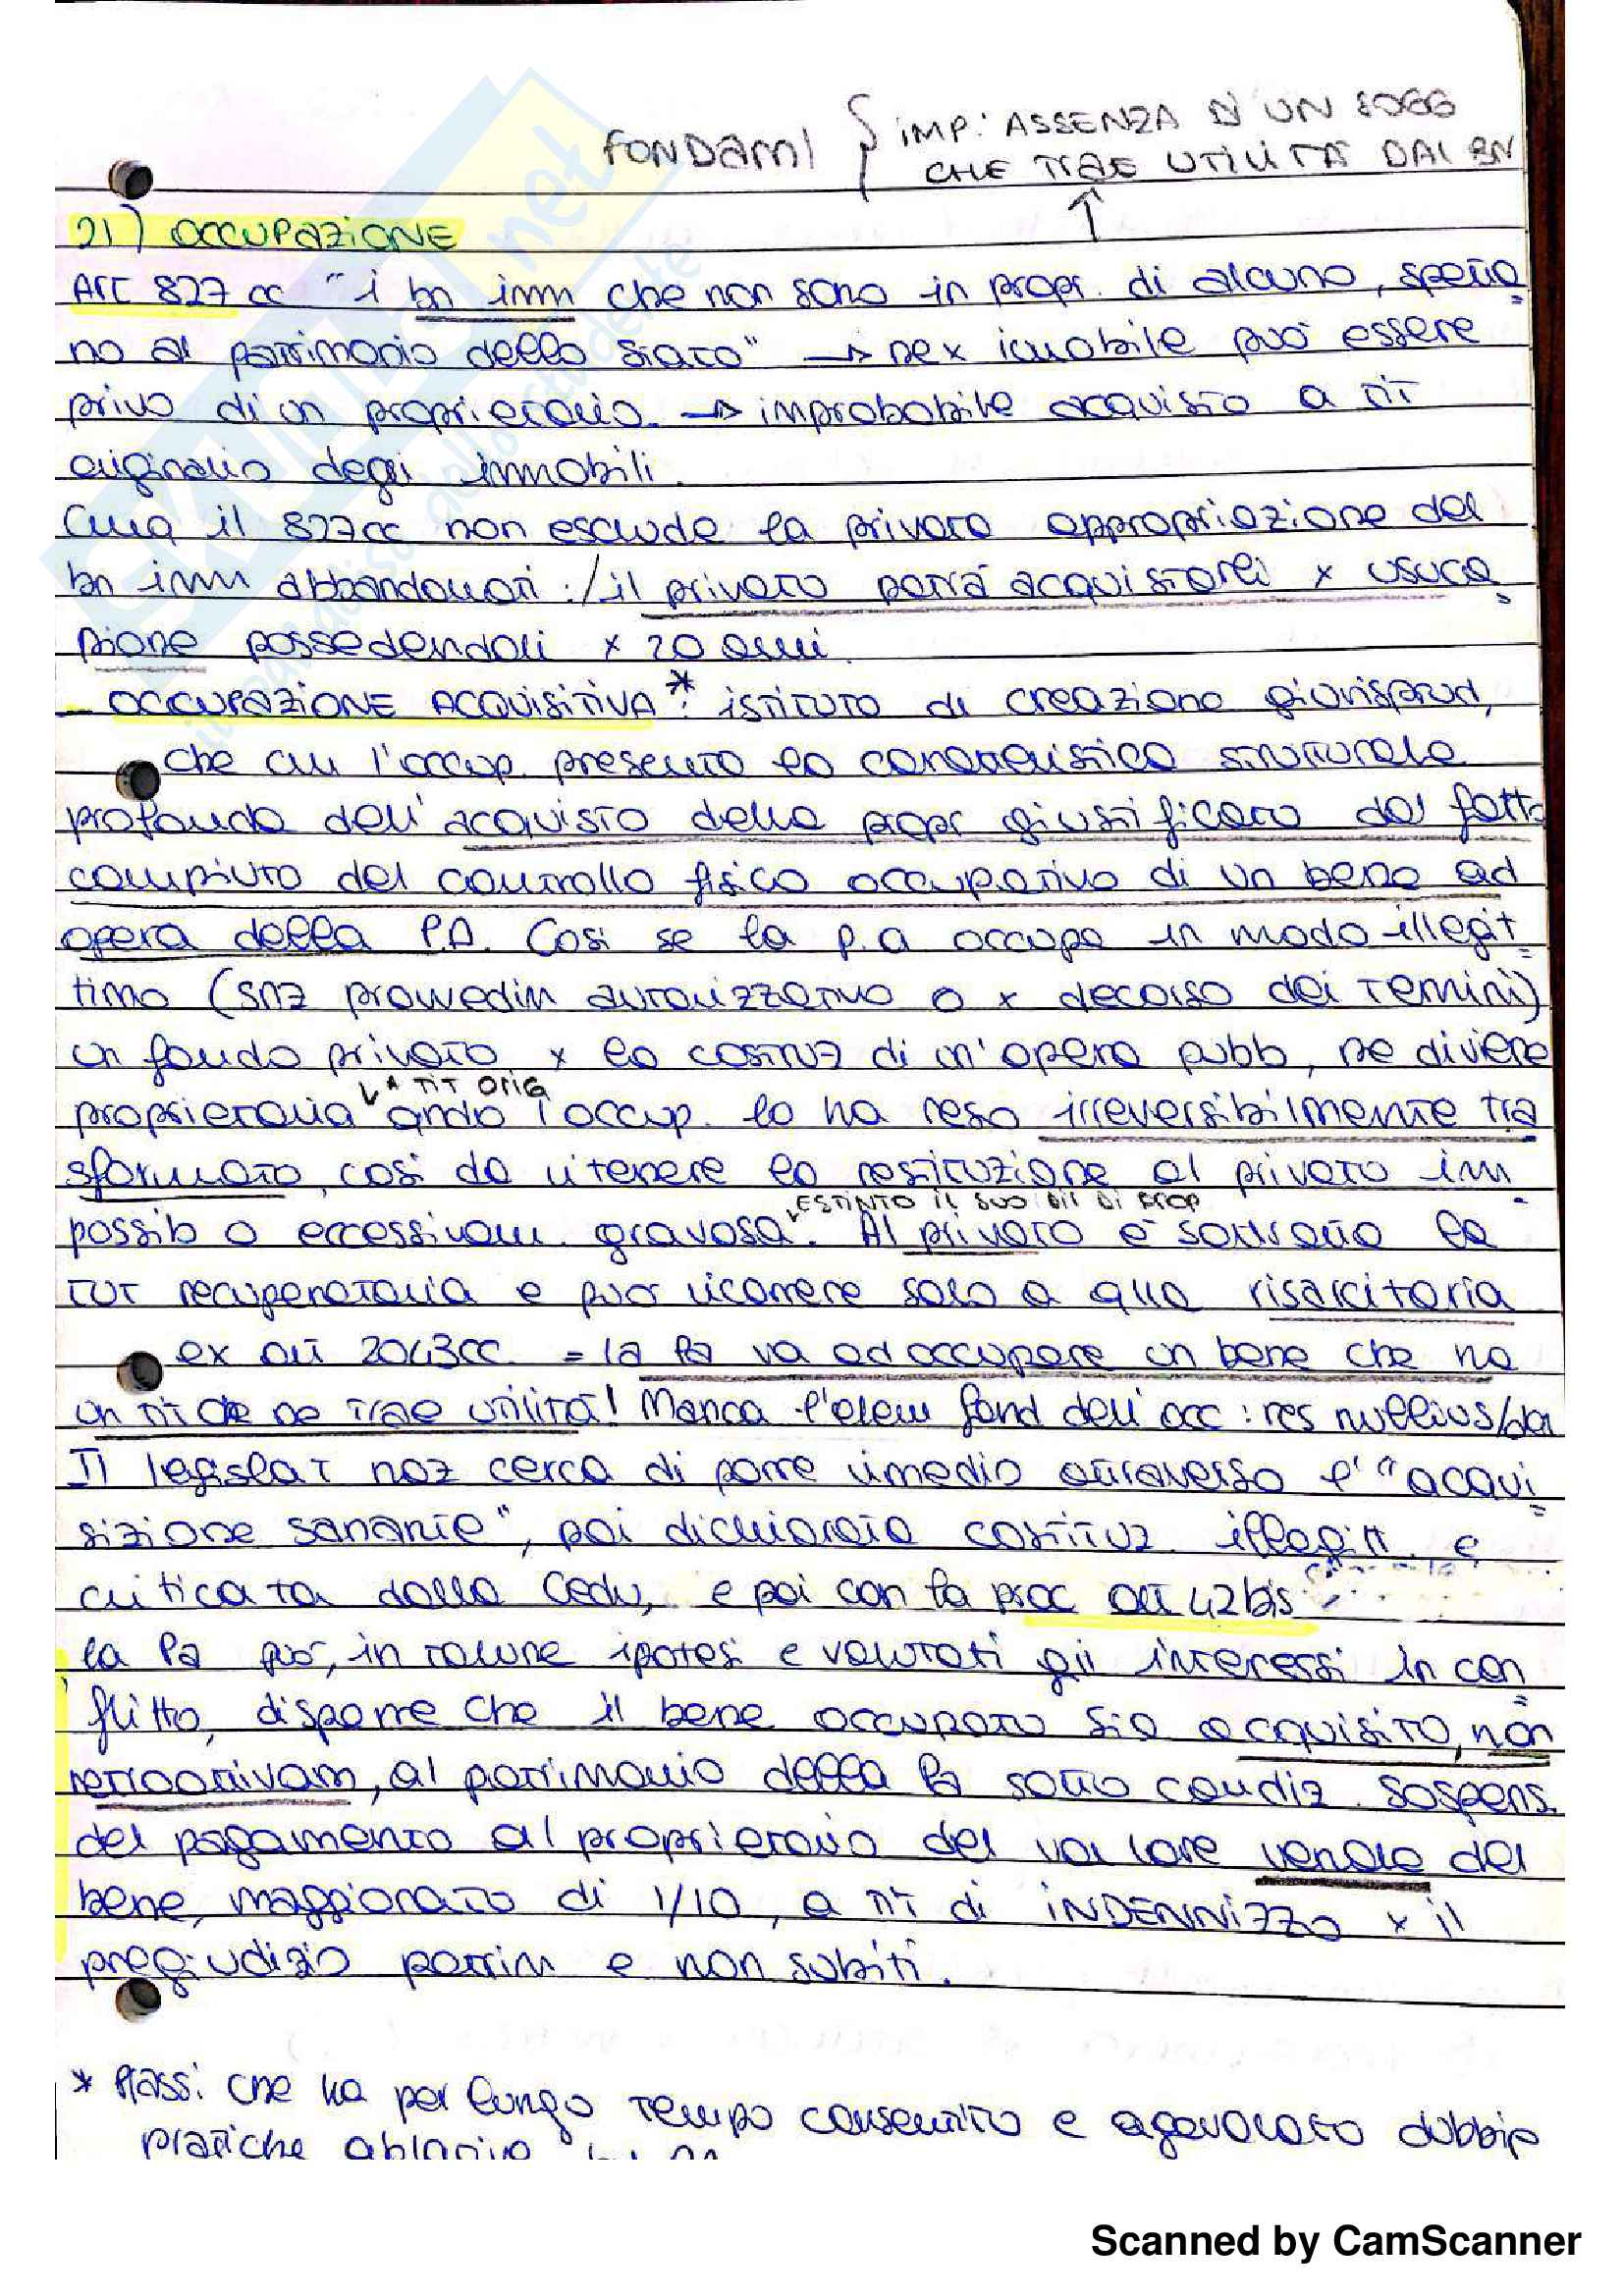 FONDAM { IMP: ASSENZA DI UN SOGG
CHE TRAE UTILITÀ DAI BN
21) OCCUPAZIONE
Art 827 cc "i bn imm che non sono in propr. di alcuno, spetta
no al patrimonio dello Stato" → nex immobile può essere
privo di un proprietario. → improbabile acquisto a tit
originario degli immobili.
Cmq il 827cc non esclude la privata appropriazione dei
bn imm abbandonati :/il privato potrà acquistarli x usuca
pione possedendoli x 20 anni.
– OCCUPAZIONE ACQUISITIVA*: istituto di creazione giurisprud,
che cn l'occup. presenta la caratteristica strutturale
profonda dell'acquisto della propr giustificata dal fatto
compiuto del controllo fisico occupativo di un bene ad
opera della P.A. Così se la p.a occupa in modo illegit
timo (snz provvedim autorizzativo o x decorso dei termini)
un fondo privato x la costruz di un'opera pubb, ne diviene
↳ A TIT ORIG
proprietaria qndo l'occup. lo ha reso irreversibilmente tra
sformato, così da ritenere la restituzione al privato im
ESTINTO IL SUO DIR DI PROP
possib o eccessivam. gravosa. Al privato è sottratta la
tut recuperatoria e può ricorrere solo a qlla risarcitoria
ex art 2043cc. = la Pa va ad occupare un bene che ha
un tit che ne trae utilità! Manca l'elem fond dell'occ : res nullius/
Il legislat naz cerca di porre rimedio attraverso l'"acqui
sizione sanante", poi dichiarata costituz. illegitt. e
criticata dalla Cedu, e poi con la proc art 42bis
la Pa può, in talune ipotesi e valutati gli interessi in con
flitto, disporre che il bene occupato sia acquisito, non
retroattivam, al patrimonio della Pa sotto condiz. sospens.
del pagamento al proprietario del valore venale del
bene, maggiorato di 1/10, a tit di INDENNIZZO x il
pregiudizio patrim e non subiti.
* Prassi che ha per lungo tempo consentito e agevolato dubbie
pratiche ablative
Scanned by CamScanner